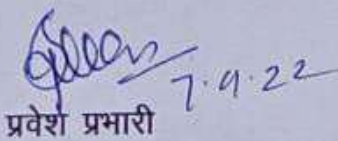 7.9.22
प्रवेश प्रभारी